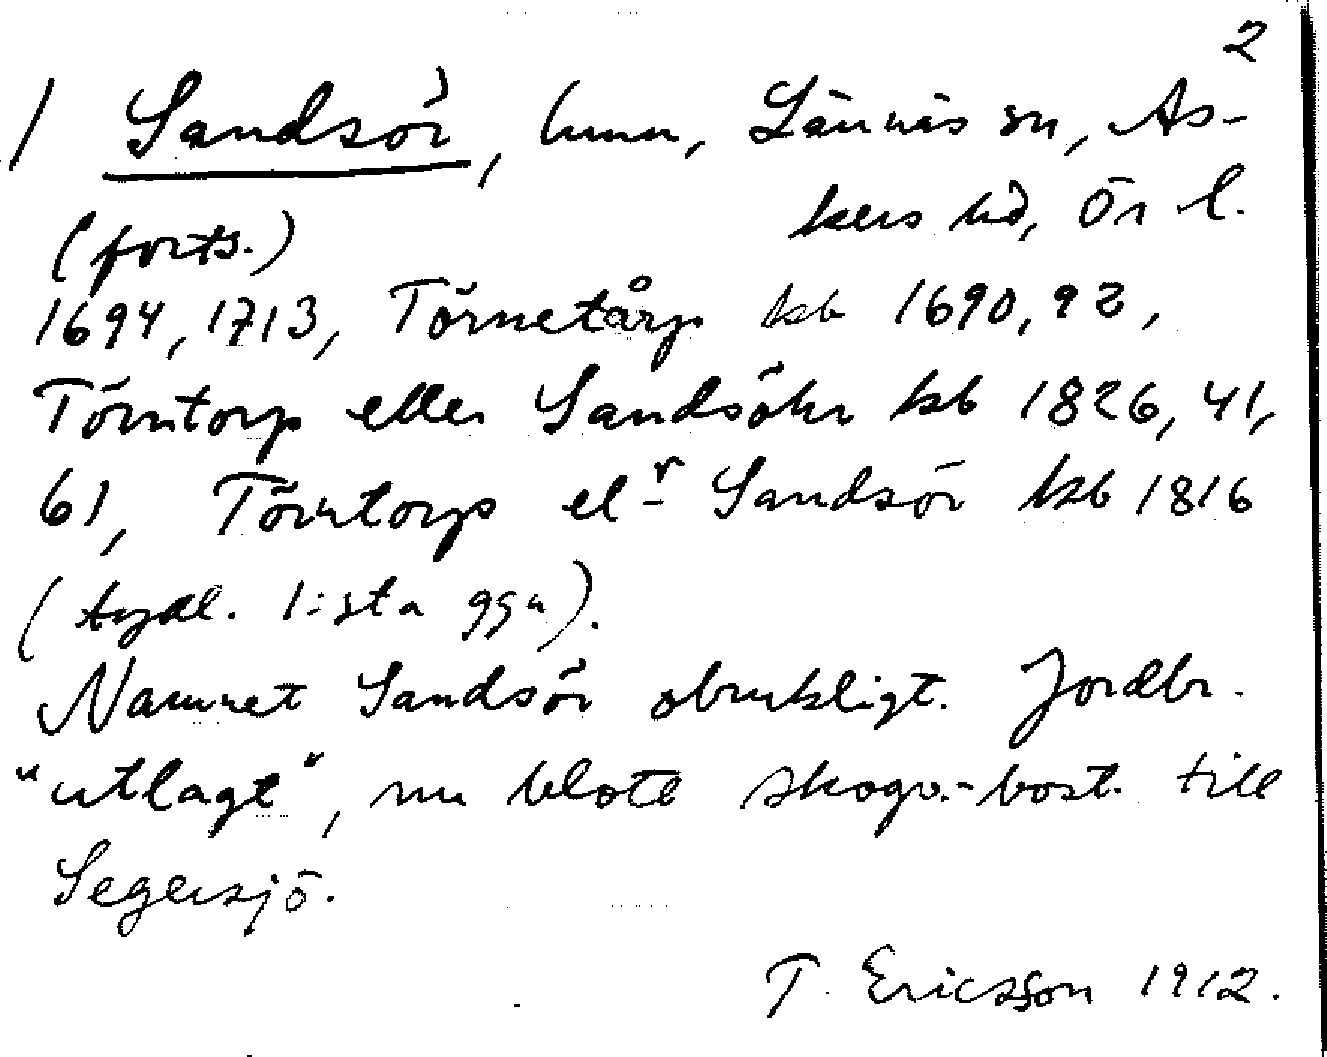 2
/ Sandsör, hmn, Lännäs sn, As-
kers hd, Ör l.
(forts.)
1694, 1713, Törnetårp kb 1690, 93,
Törntorp eller Sandsöhr kb 1826, 41,
61, Törntorp elr Sandsör kb 1816
(tydl. 1:sta ggn).
Namnet Sandsör obrukligt. Jordbr.
"utlagt", nu blott skogv.-bost. till
Segersjö.
T. Ericsson 1912.